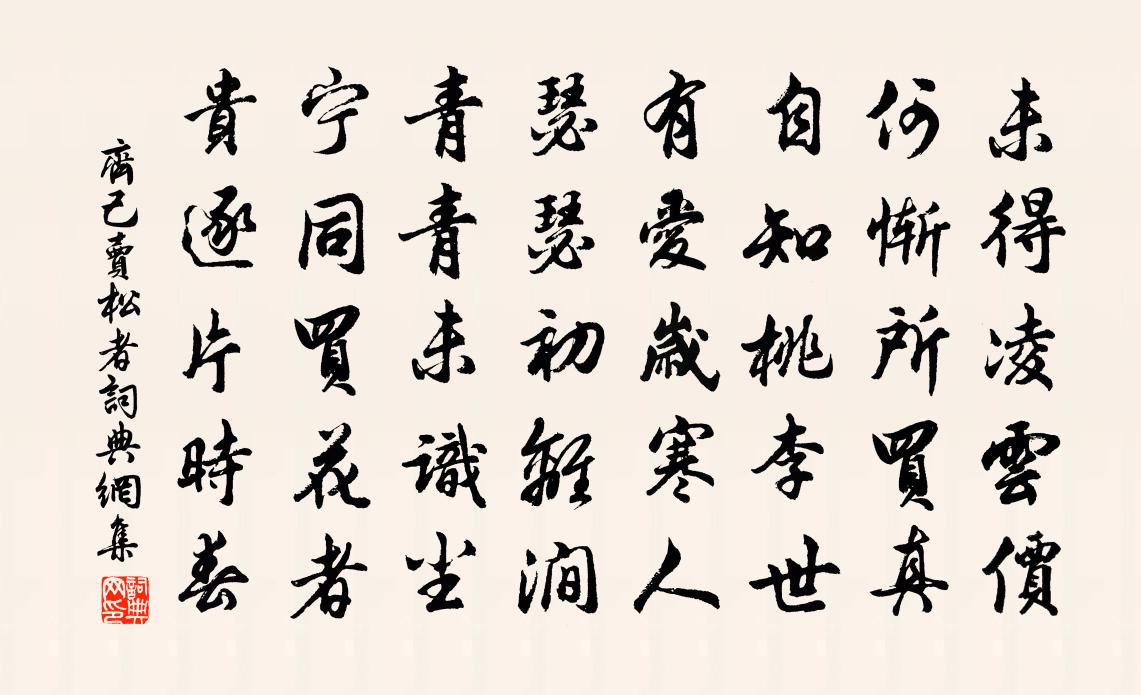 未得凌雲價
何慚所買真
自知桃李世
有愛歲寒人
瑟瑟初離澗
青青未識尘
宁同買花者
貴逐片時春
齊己賣松者詞典網集
詞典网印